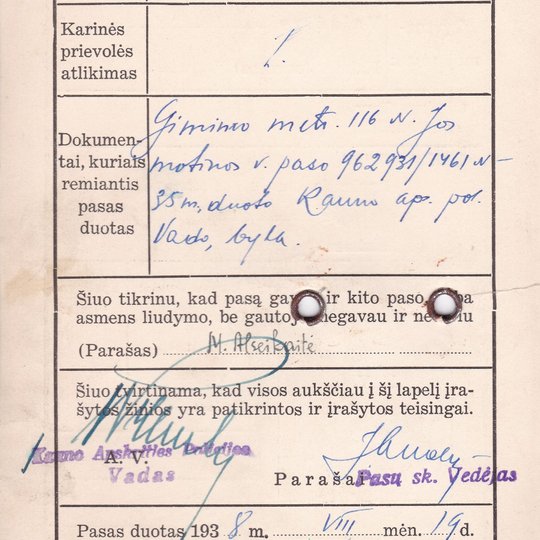 Karinės
prievolės
atlikimas
Dokumen-
tai, kuriais
remiantis
pasas
duotas
Gimimo metr. 116 N. Jos
motinos v. paso 962931/1461 N–
35 m, duoto Kauno ap. pol.
Vado, byla.
Šiuo tikrinu, kad pasą gav ir kito paso ba
asmens liudymo, be gautoj negavau ir ne iu
(Parašas) M. Alseikaitė
Šiuo tvirtinama, kad visos aukščiau į šį lapelį įra-
šytos žinios yra patikrintos ir įrašytos teisingai.
Kauno Apskrities Policijos
A. V.
Vadas
Parašai
Pasų sk. Vedėjas
Pasas duotas 1938 m. VIII mėn. 19 d.